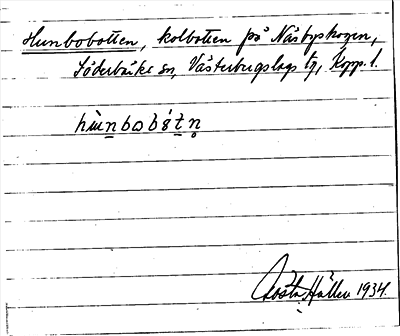 Hunbobotten, kolbotten på Näsbyskogen,
Söderbärke sn, Västerbergslags tg, Kopp. l.
hùnbobótn̥
Gösta Hållen 1934.